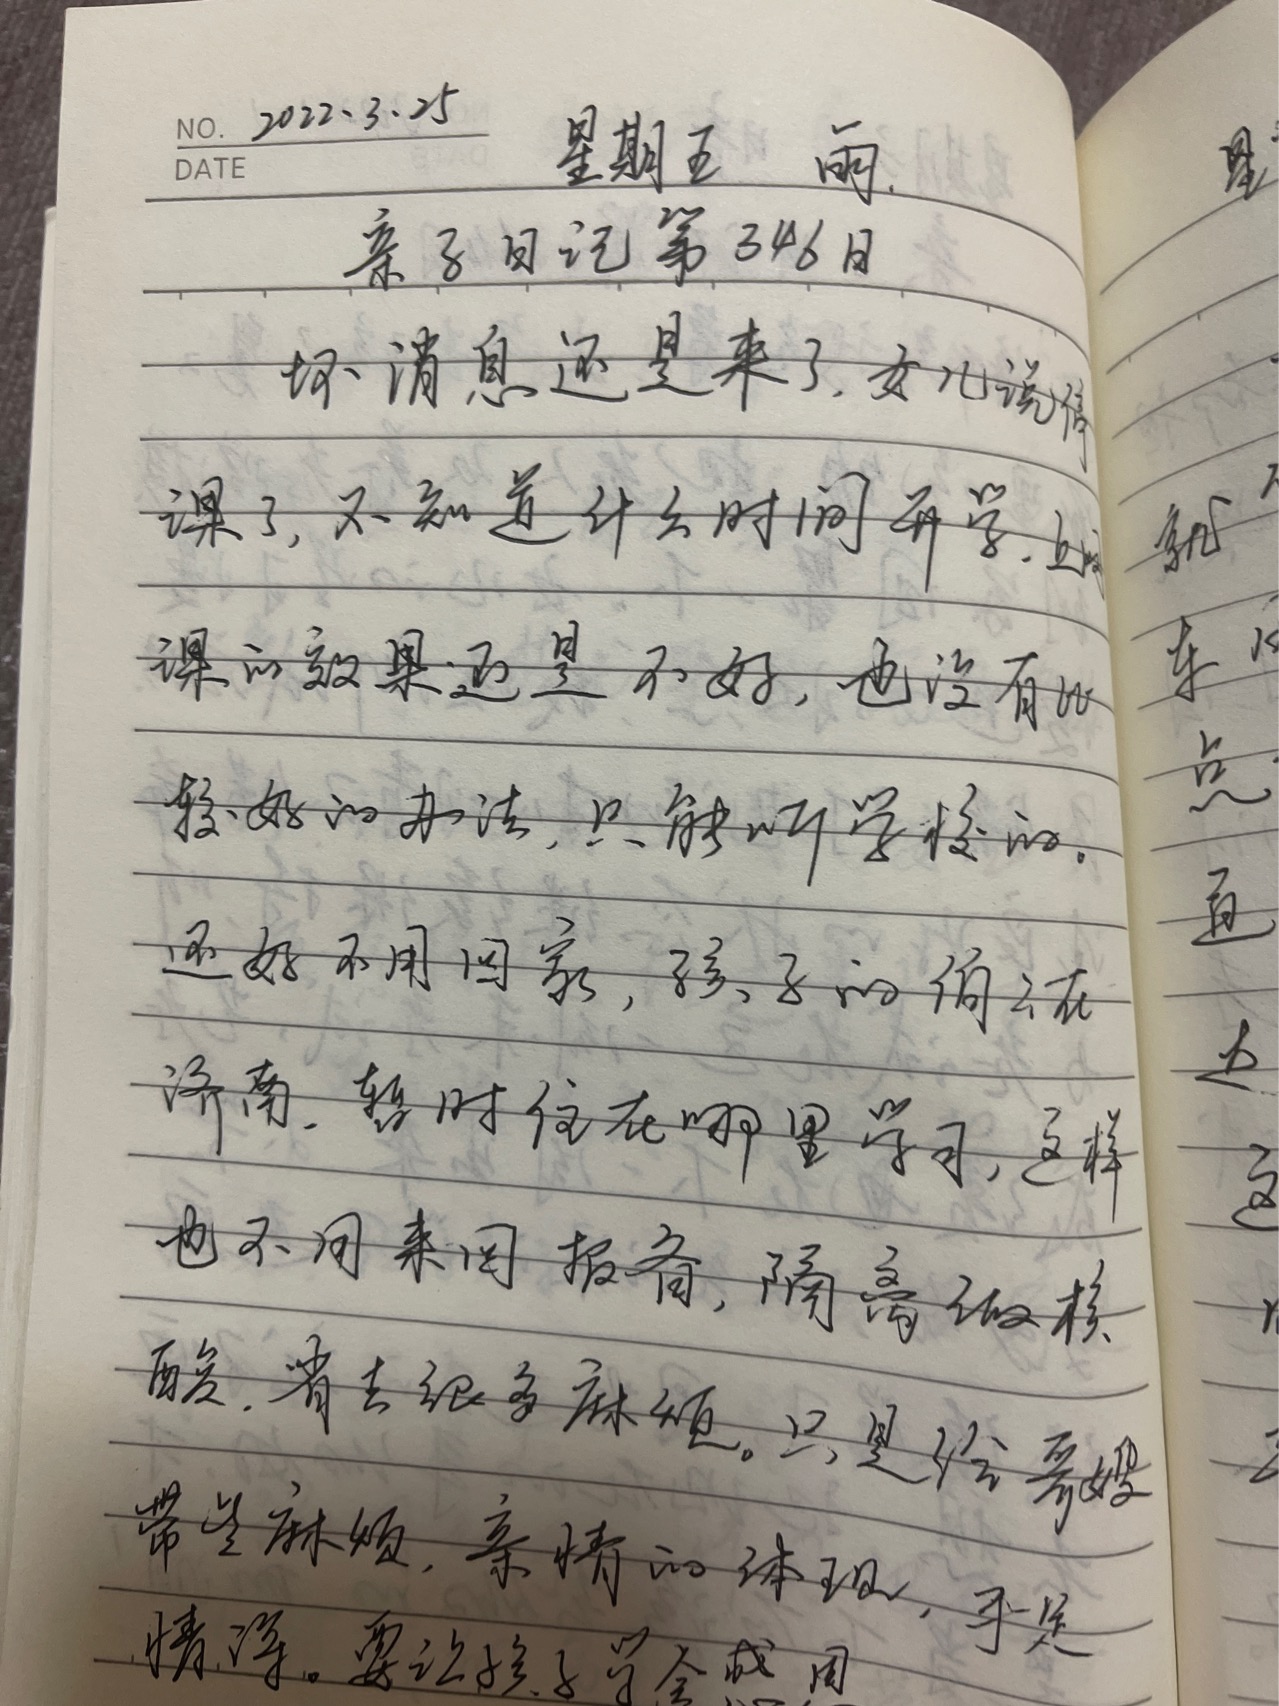 NO. 2022.3.25
DATE
星期五 雨.
亲子日记第346日
坏消息还是来了,女儿说停
课了,不知道什么时间开学.上网
课的效果还是不好,也没有比
较好的办法,只能听学校的.
还好不用回家,孩子的伯伯在
济南.暂时住在哪里学习,这样
也不用来回报备,隔离做核
酸.省去很多麻烦。只是给哥嫂
带些麻烦.亲情的体现,手足
情深。要让孩子学会感恩